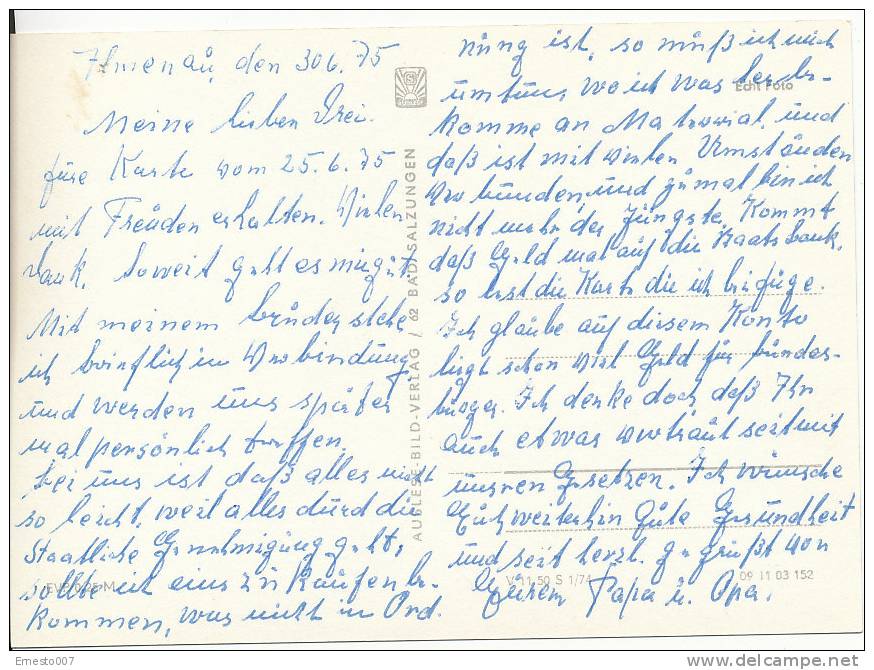 Ilmenau, den 30.6.75
Meine lieben Drei.
Eure Karte vom 25.6.75
mit Freuden erhalten. Vielen
Dank. Soweit geht es mir gut.
Mit meinem Bruder stehe
ich brieflich in Verbindung
und werden uns später
mal persönlich treffen.
bei uns ist daß alles nicht
so leicht, weil alles durch die
Staatliche Genehmigung geht,
sollte ich eins zu kaufen be-
kommen, was nicht in Ord.
nung ist, so muß ich mich
umtun, wo ich was her be-
komme an Material, und
daß ist mit vielen Umständen
verbunden, und zumal bin ich
nicht mehr der Jüngste. Kommt
daß Geld mal auf die Staatsbank,
so lest die Karte die ich beifüge.
Ich glaube auf diesem Konto
liegt schon viel Geld für Bundes-
bürger. Ich denke doch daß Ihr
auch etwas vertraut seit mit
unsren Gesetzen. Ich wünsche
Euch weiterhin Gute Gesundheit
und seit herzl. gegrüßt von
Eurem Papa u. Opa.
Echt Foto
AUSLESE-BILD-VERLAG / 62 BAD SALZUNGEN
EVP 0,25 M
V 11 50 S 1/74
09 11 03 152
Ernesto007
www.delcampe.net